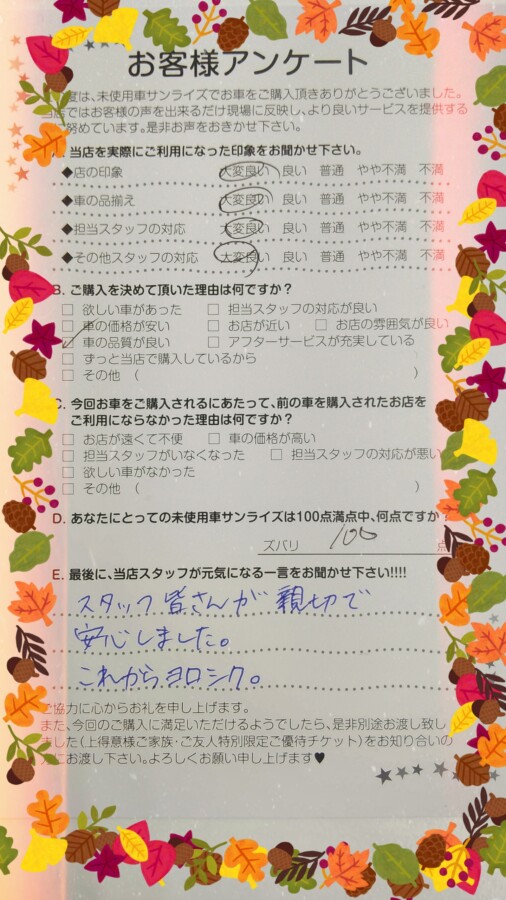 お客様アンケート
度は、未使用車サンライズでお車をご購入頂きありがとうございました。
当店ではお客様の声を出来るだけ現場に反映し、より良いサービスを提供する
に努めています。是非お声をおきかせ下さい。
. 当店を実際にご利用になった印象をお聞かせ下さい。
◆店の印象 大変良い 良い 普通 やや不満 不満
◆車の品揃え 大変良い 良い 普通 やや不満 不満
◆担当スタッフの対応 大変良い 良い 普通 やや不満 不満
◆その他スタッフの対応 大変良い 良い 普通 やや不満 不満
B. ご購入を決めて頂いた理由は何ですか?
□ 欲しい車があった □ 担当スタッフの対応が良い
□ 車の価格が安い □ お店が近い □ お店の雰囲気が良い
☑ 車の品質が良い □ アフターサービスが充実している
□ ずっと当店で購入しているから
□ その他 ( )
C. 今回お車をご購入されるにあたって、前の車を購入されたお店を
ご利用にならなかった理由は何ですか?
□ お店が遠くて不便 □ 車の価格が高い
□ 担当スタッフがいなくなった □ 担当スタッフの対応が悪い
□ 欲しい車がなかった
□ その他 ( )
D. あなたにとっての未使用車サンライズは100点満点中、何点ですか?
ズバリ 100 点
E. 最後に、当店スタッフが元気になる一言をお聞かせ下さい!!!!
スタッフ皆さんが親切で
安心しました。
これからヨロシク。
ご協力に心からお礼を申し上げます。
また、今回のご購入に満足いただけるようでしたら、是非別途お渡し致し
ました(上得意様ご家族・ご友人特別限定ご優待チケット)をお知り合いの
にお渡し下さい。よろしくお願い申し上げます♥